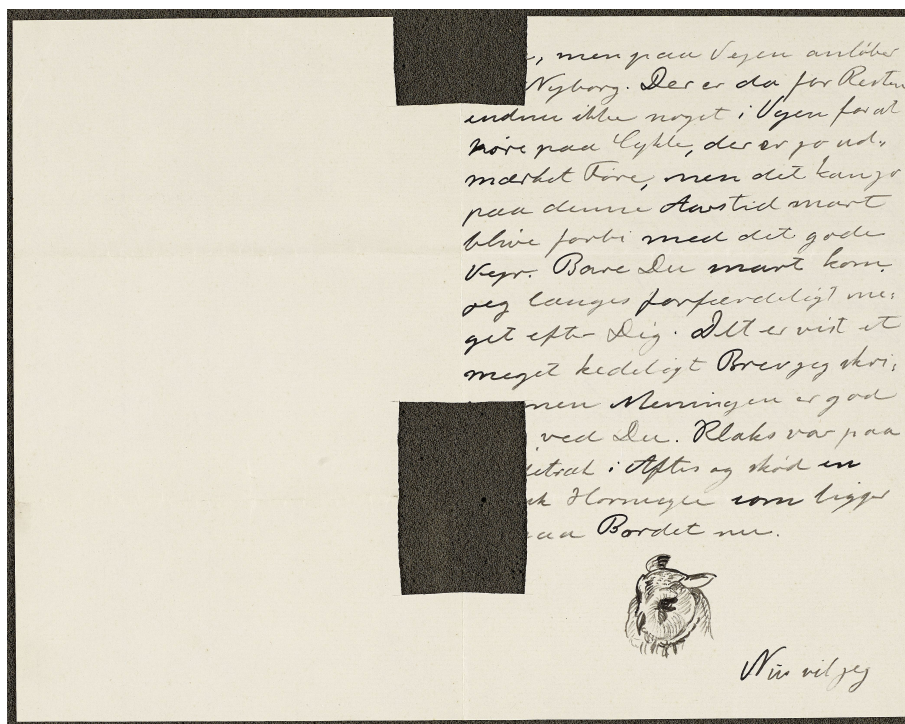 , men paa Vejen anløber
Nyborg. Der er da for Resten
endnu ikke noget i Vejen for at
køre paa Cykle, der er jo ud-
mærket Føre, men det kan jo
paa denne Aarstid snart
blive forbi med det gode
Vejr. Bare Du snart kom,
jeg længes forfærdeligt me-
get efter Dig. Det er vist et
meget kedeligt Brev jeg skri-
men Meningen er god
ved Du. Klaks var paa
i Aftes og skød en
Hornugle som ligger
paa Bordet nu.
Nu vil jeg